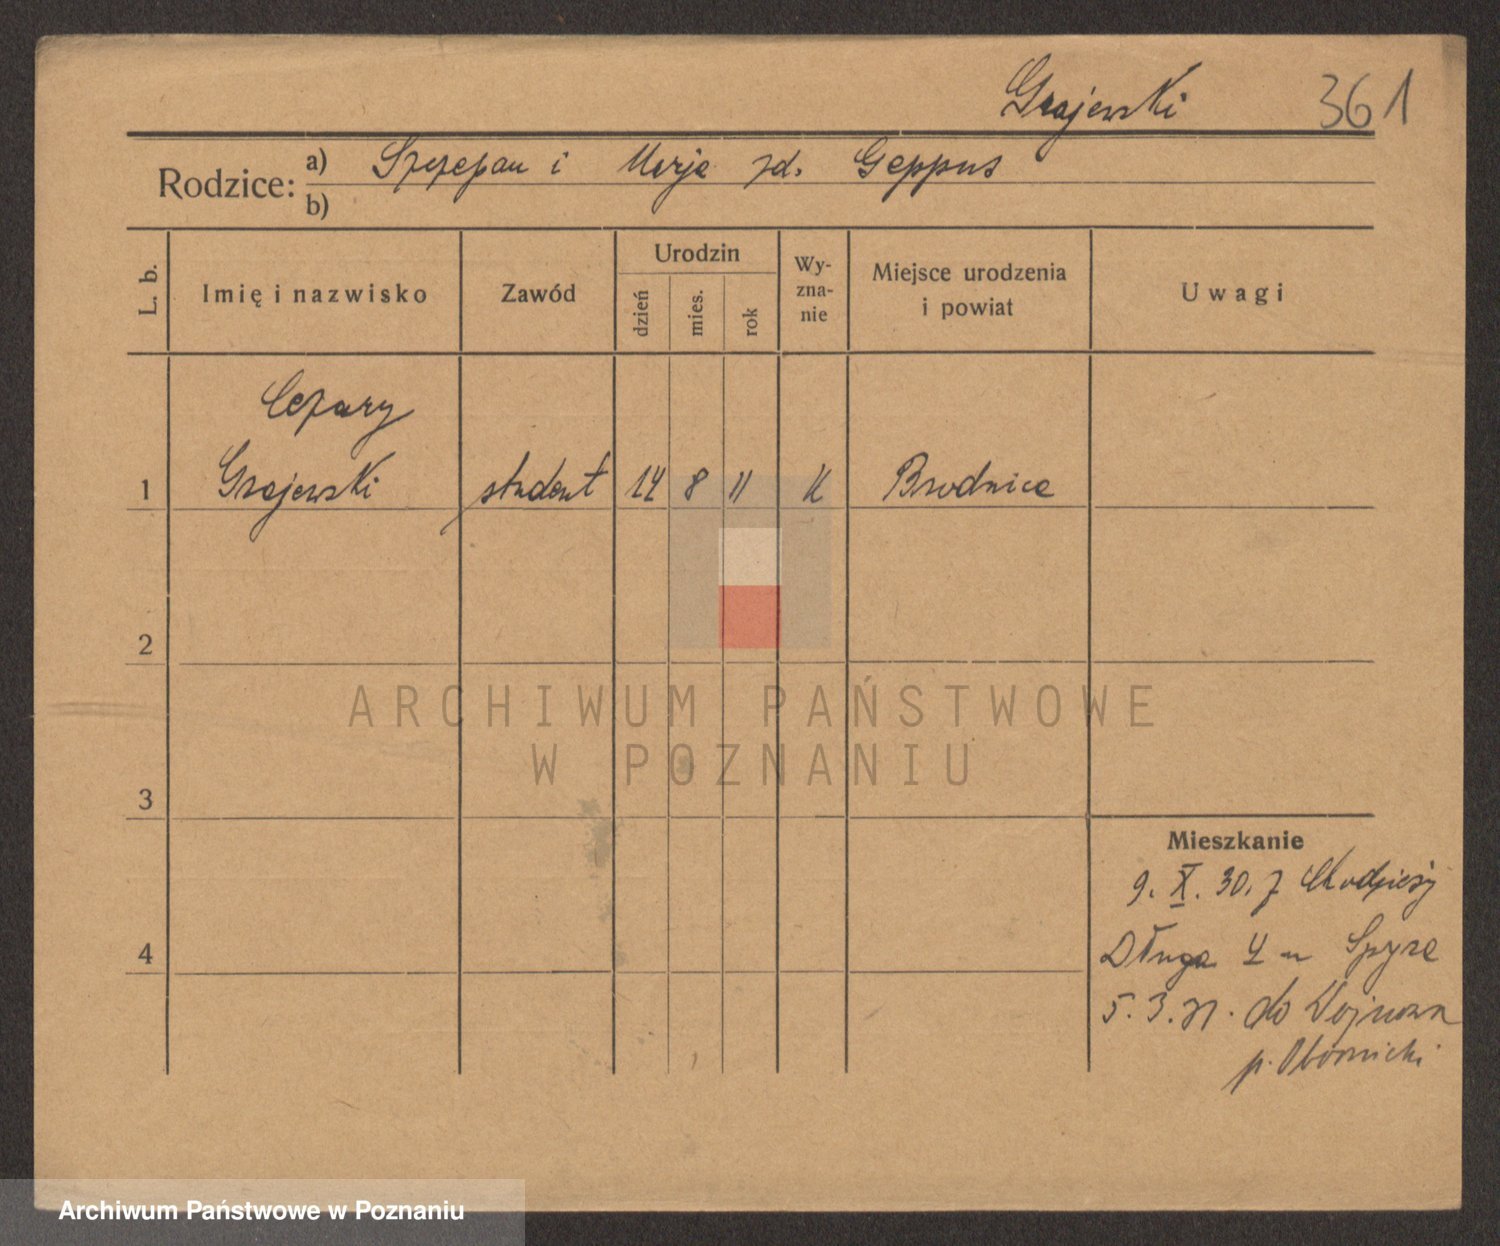 Grajewski 361
Rodzice: a) Szczepan i Marja zd. Geppus
b)
L. b.
Imię i nazwisko
Zawód
Urodzin
dzień
mies.
rok
Wy-
zna-
nie
Miejsce urodzenia
i powiat
Uwagi
Cezary
1 Grajewski student 14 8 11 K Brodnica
2
3
4
Mieszkanie
9. X. 30. z Chodzieży
Długa 4 u Spyra
5. 3. 31. do
p. Obornicki
ARCHIWUM PAŃSTWOWE
W POZNANIU
Archiwum Państwowe w Poznaniu